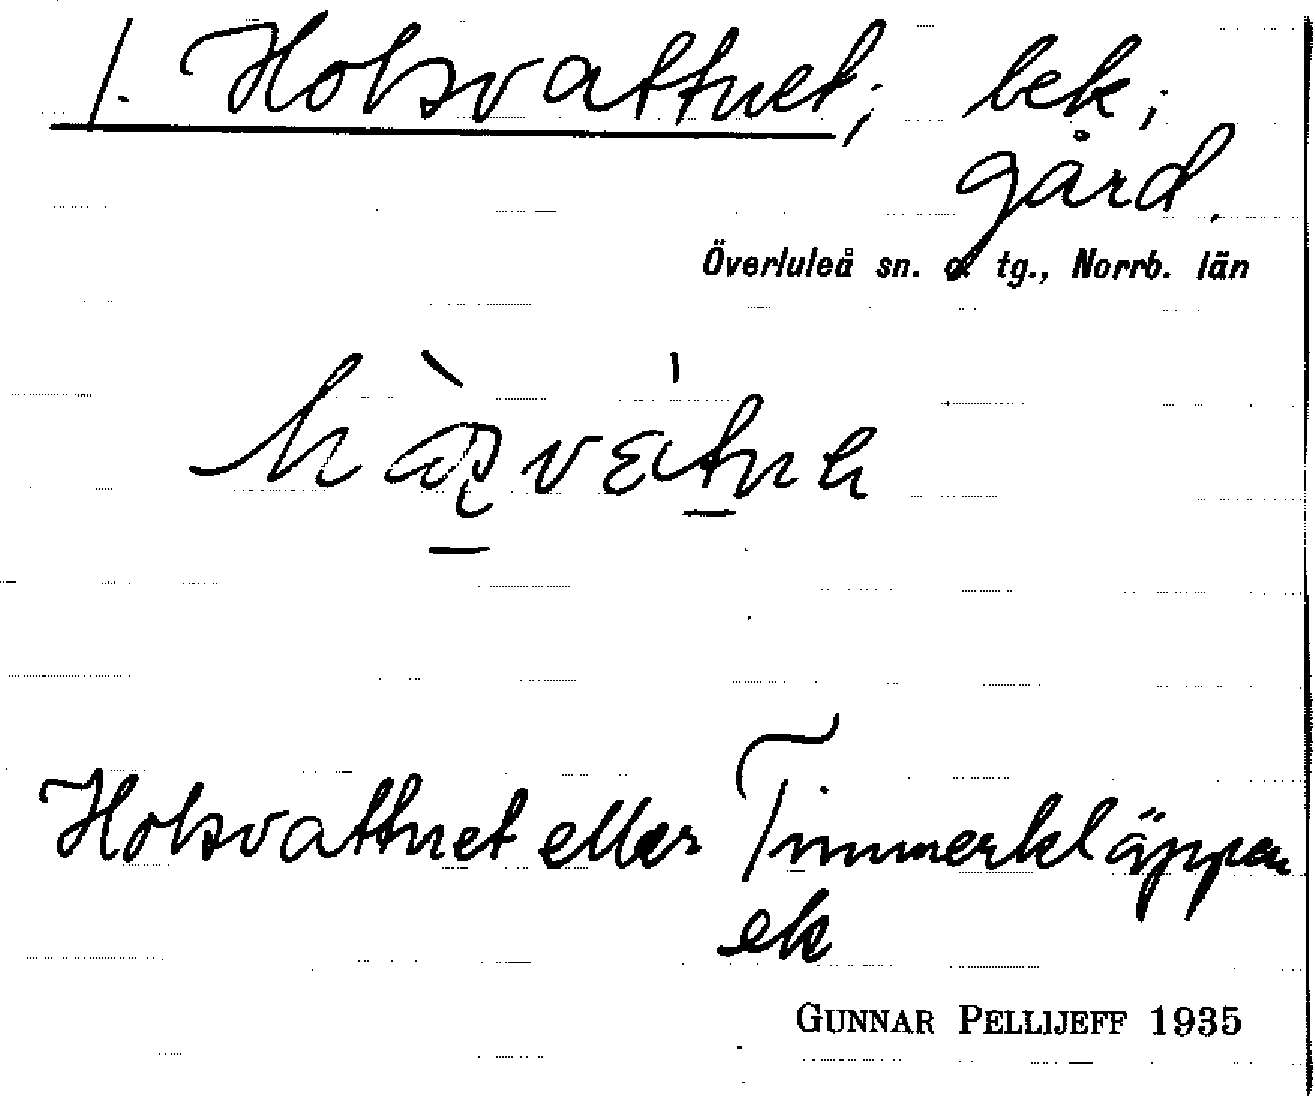 1. Holsvattnet; bek;
gård.
Överluleå sn. o. tg., Norrb. län
Holsvattnet eller Timmerkläppen
ek
GUNNAR PELLIJEFF 1935